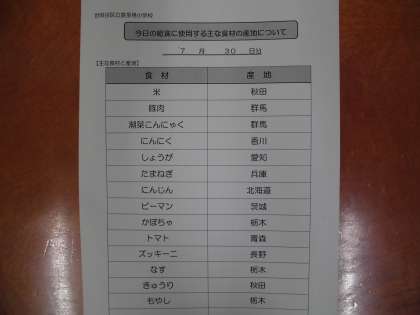 今日の給食に使用する主な食材の産地について
7 月 30 日
【主な食材と産地】
食 材 産 地
米 秋田
豚肉 群馬
こんにゃく 群馬
にんにく 香川
しょうが 愛知
たまねぎ 兵庫
にんじん 北海道
ピーマン 茨城
かぼちゃ 栃木
トマト 青森
ズッキーニ 長野
なす 栃木
きゅうり 秋田
もやし 栃木